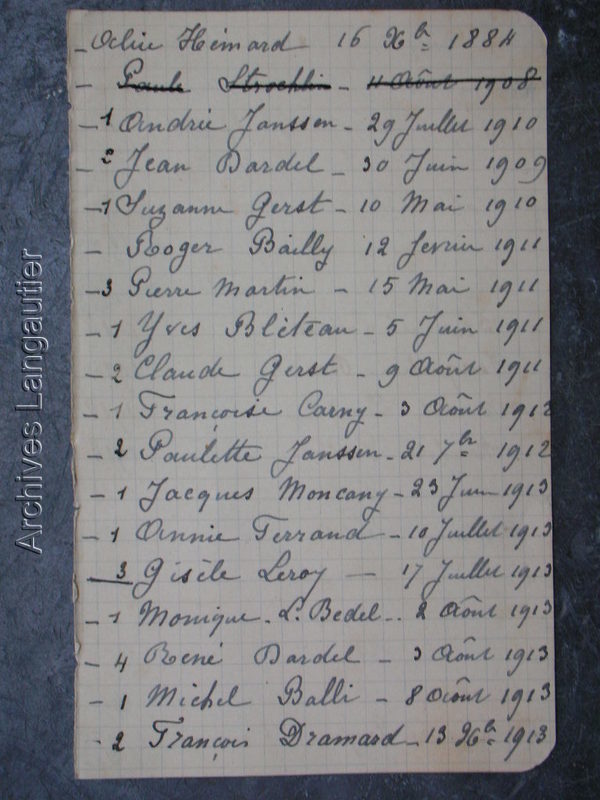 - Hémard 16 Xbre 1884
- Paule Stroehlin - 11 Août 1908
- 1 Andrée Janssen - 29 Juillet 1910
- 2 Jean Dardel - 30 Juin 1909
- 1 Suzanne Gerst - 10 Mai 1910
- Roger Bailly 12 fevrier 1911
- 3 Pierre Martin - 15 Mai 1911
- 1 Yves Blêteau - 5 Juin 1911
- 2 Claude Gerst - 9 Août 1911
- 1 Françoise Carny - 3 Août 1912
- 2 Paulette Janssen - 21 7bre 1912
- 1 Jacques Moncany - 23 Juin 1913
- 1 Annie Ferrand - 10 Juillet 1913
- 3 Gisèle Leroy - 17 Juillet 1913
- 1 Monique L. Bedel - 2 Août 1913
- 4 René Dardel - 3 Août 1913
- 1 Michel Balli - 8 Août 1913
- 2 François Dramard - 13 Xbre 1913
Archives Langautier